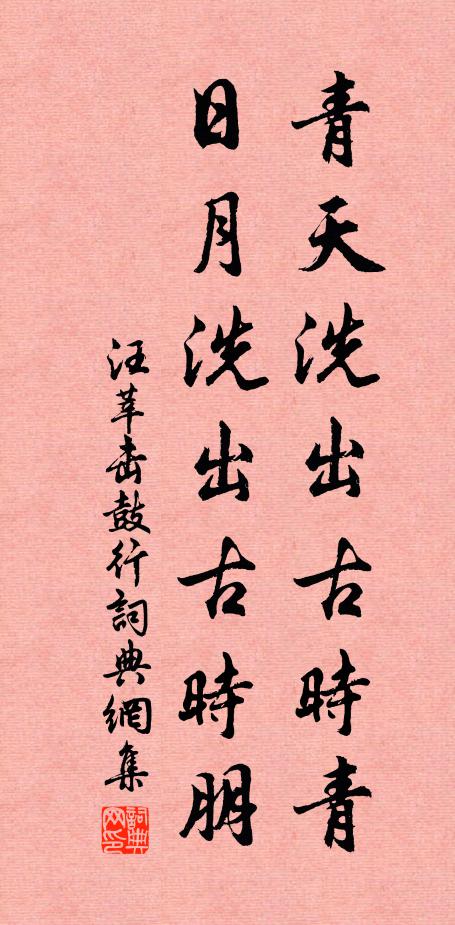 青天洗出古時青
日月洗出古時明
汪莘击鼓行詞典網集
詞典
网印